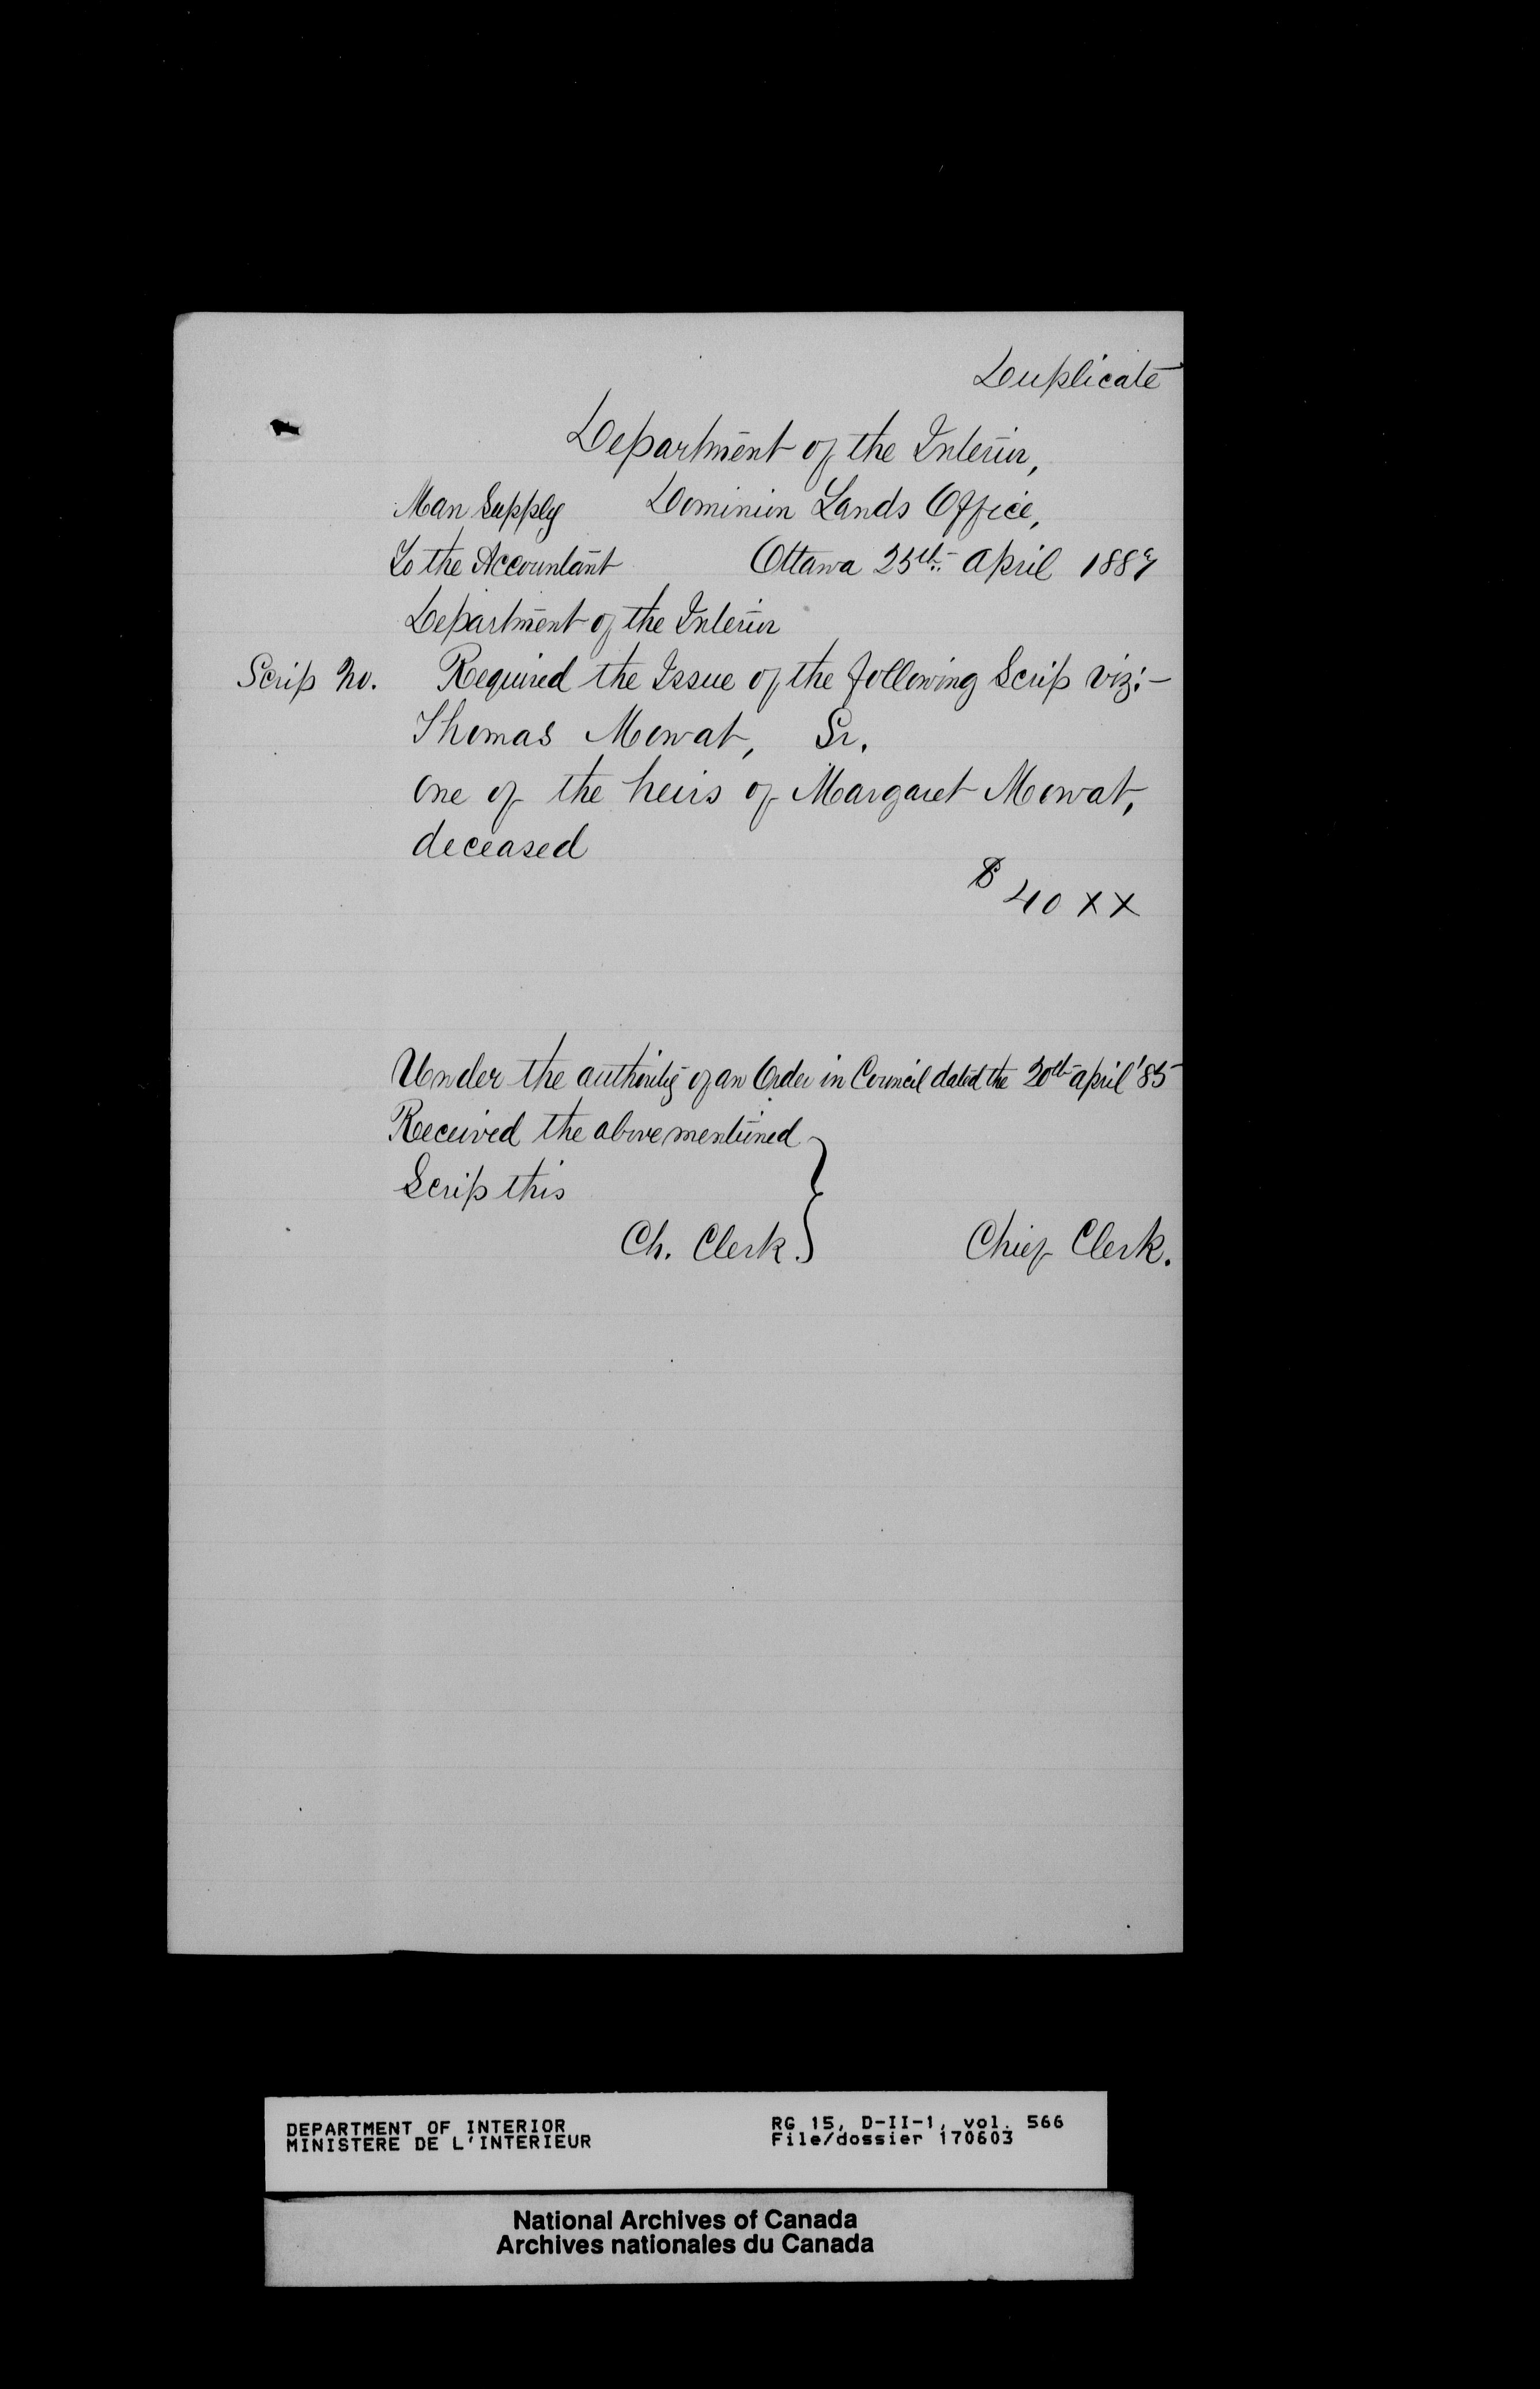 Duplicate
Department of the Interior,
Man Supply Dominion Lands Office,
To the Accountant Ottawa 25th April 1887
Department of the Interior
Scrip No. Required the Issue of the following Scrip viz:-
Thomas Mowat, Sr.
one of the heirs of Margaret Mowat,
deceased
$ 40 xx
Under the authority of an Order in Council dated the 20th April '85
Received the above mentioned
Scrip this
Ch. Clerk. Chief Clerk.
DEPARTMENT OF INTERIOR RG 15, D-II-1, vol. 566
MINISTERE DE L'INTERIEUR File/dossier 170603
National Archives of Canada
Archives nationales du Canada